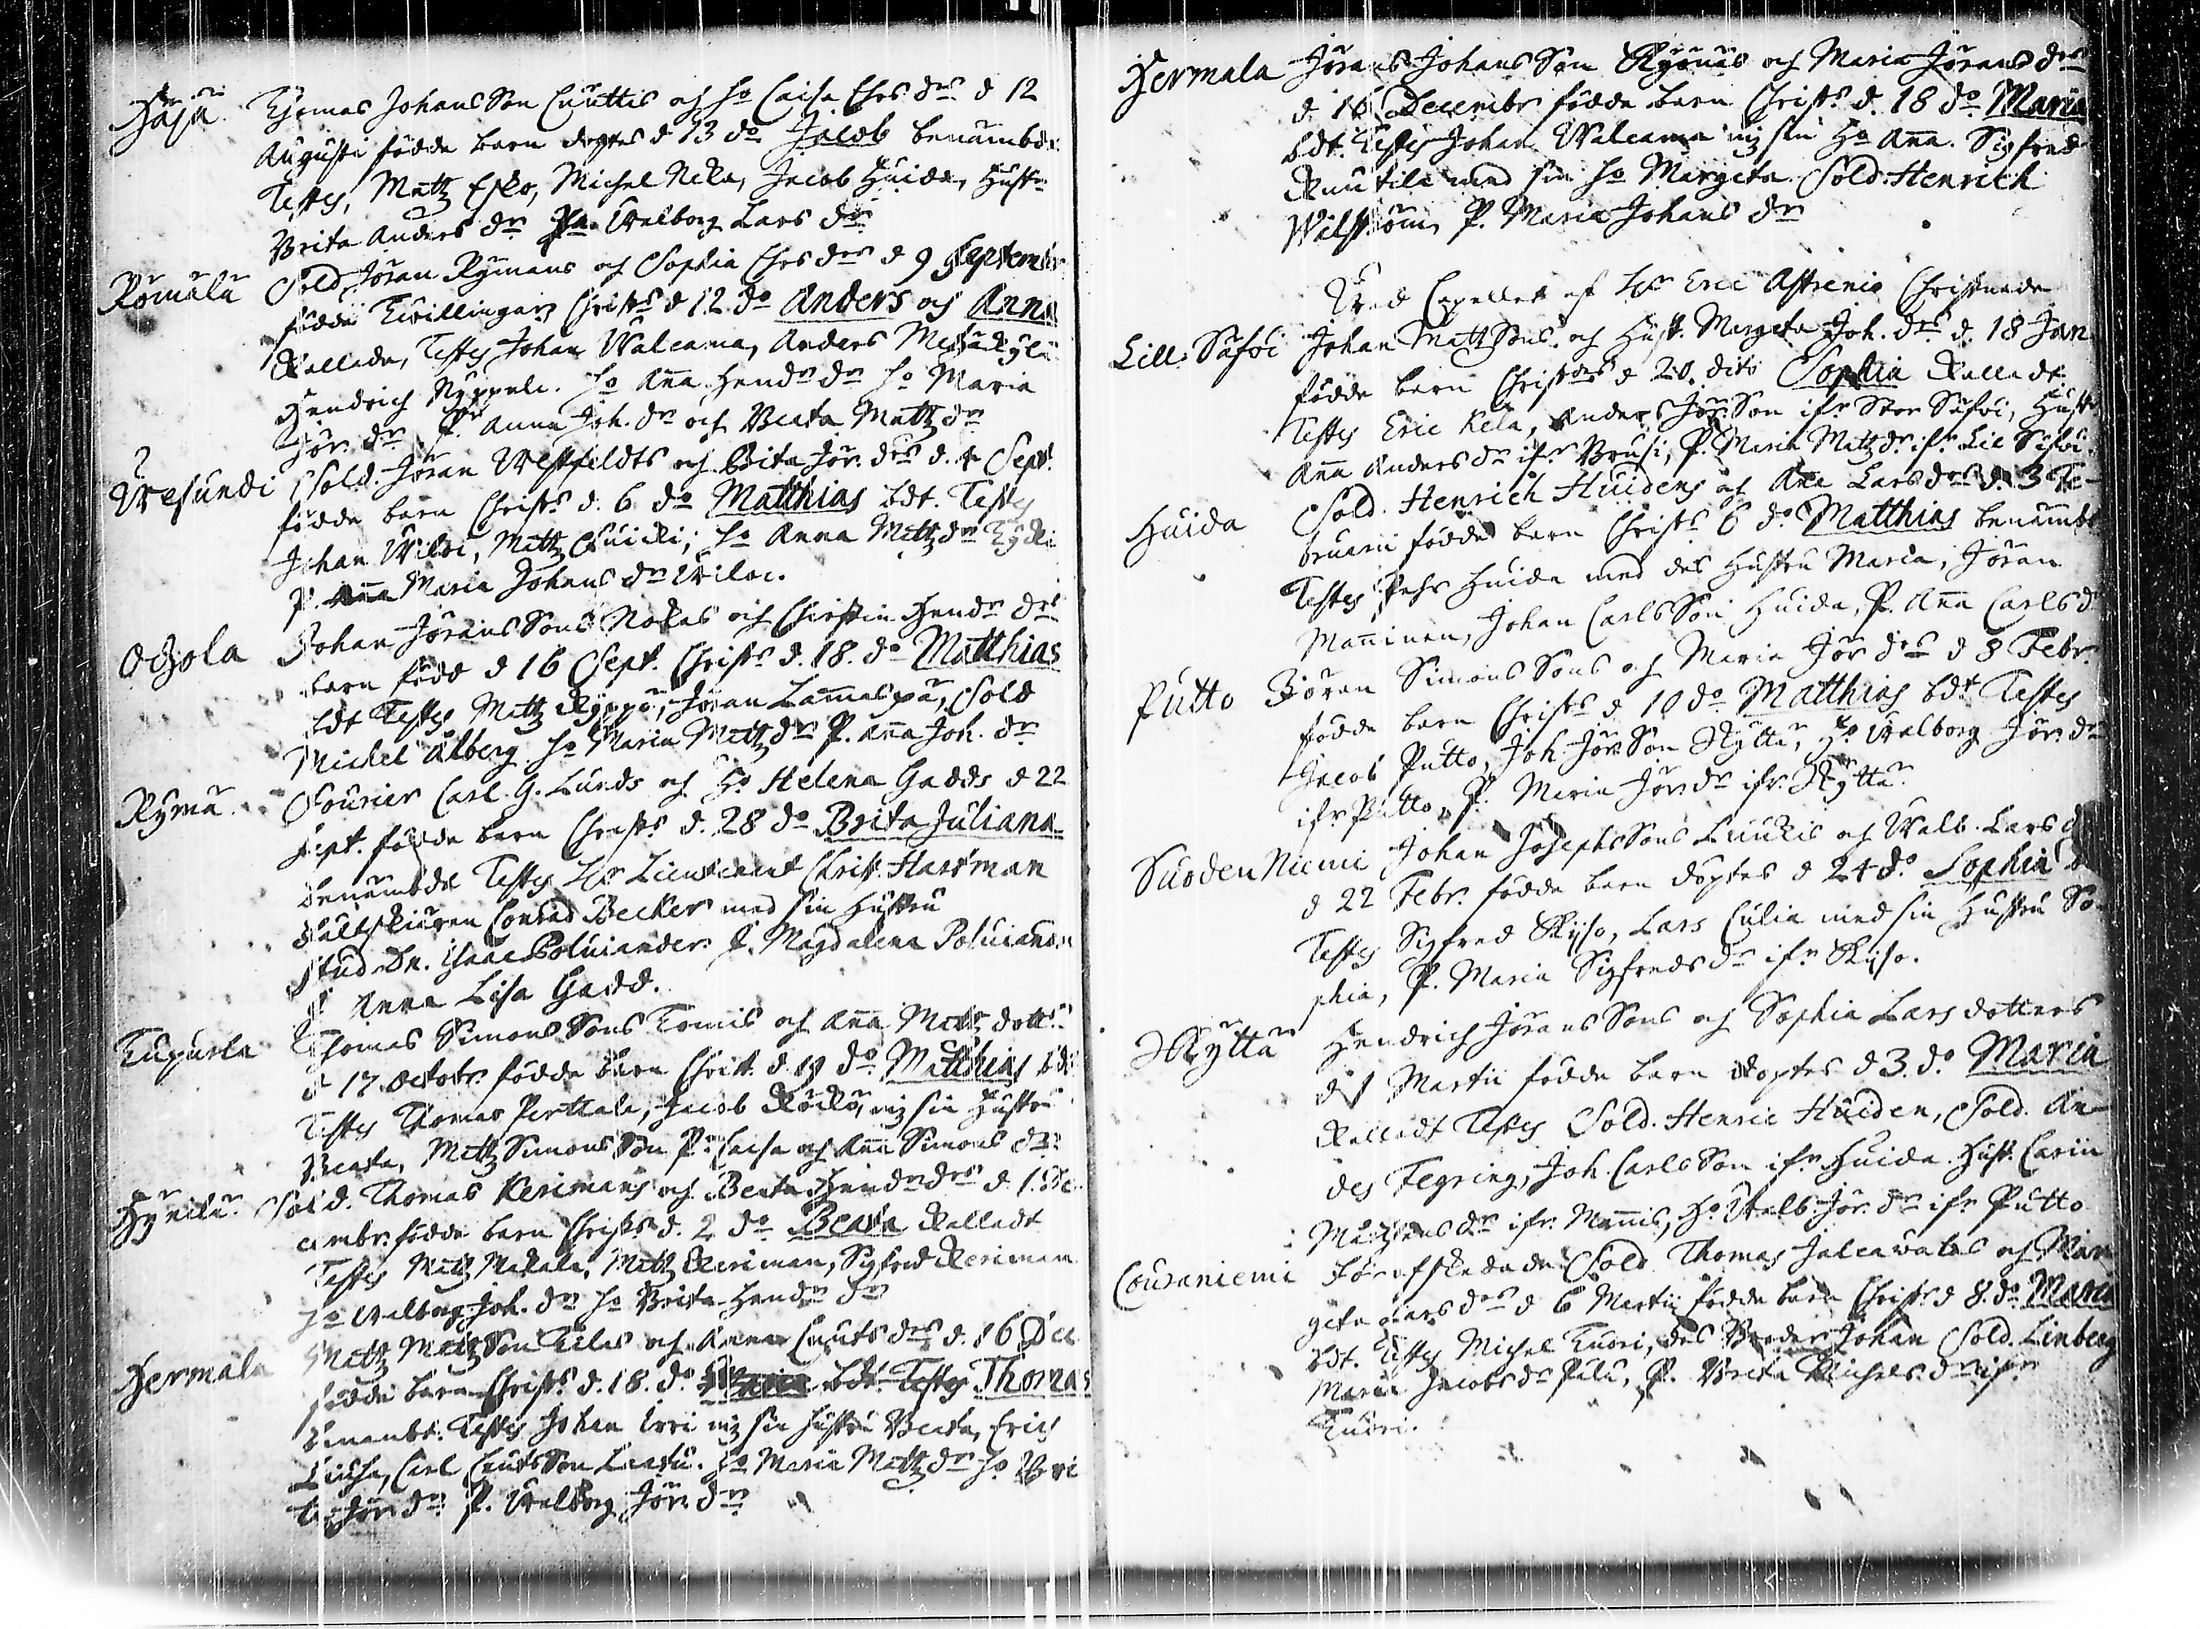 Haja Thomas Johans Son Cuuttis och Ho Caisa Chrs dr d 12
Augusti födde barn döptes d 13 do Jacob benämbd
Testes, Mattz Esko, Michel Neka, Jacob Huida, Hustr
Brita Anders dr Pa. Walborg Lars dr
Römälä Sold. Jöran Rymans och Sophia Chrs drs d 9 Septemb
födde Twillingar Christs d 12 do Anders och Anna
Kallade, Testes Johan Walcama, Anders
Hendrich Nyppeli. Ho Ana Hendr dr Ho Maria
Jör. dr P. Anna Joh. dr och Beata Mattz dr
Wesundi Sold. Jöran Westfeldts och Brita Jör. drs d. 4 Sept.
födde barn Christs d. 6 do Matthias bdt. Testes
Johan Wiloi, Mattz Ho Anna Mattz dr
P. Maria Johans dr Wiloi.
Ochola Johan Jörans Sons Nokas och Chirstin Hendr drs
barn född d 16 Sept. Christs d. 18. do Matthias
bdt Testes Mattz Jöran Lamaspä, Sold
Michel Alberg Ho Maria Mattz dr P. Ana Joh. dr
Rymä Fourier Carl G. Lunds och Ho Helena Gadds d 22
Sept. födde barn Christs d. 28 do Brita Juliana
benämbdt Testes Hr Lieutenent Christ. Hartman
Fältskiären Conrad Becker med sin Hustru
Stud. Dn. Isaac Polviander P. Magdalena Polviander
P Anna Lisa Gadd.
Tupurla Thomas Simons Sons Tomis och Ana Matz dotters
d 17 Octobr. födde barn Christ. d. 19 do Matthias bdt
Testes Thomas Perttala, Jacob mz sin Hustru
Beata, Mattz Simons Son Pr Caisa och Ana Simons dr
Sold. Thomas Kerimans och Beata Hendr drs d. 1. De
cembr. födde barn Christs d. 2 do Beata Kalladt
Testes Mattz Mattz Keriman, Sigfred Keriman
Ho Walborg Joh. dr Ho Brita Hendr dr
Hermala Mattz Mattz Son och Anna Cnuts drs d. 16 Dec
födde barn Christs d. 18. do Thomas
benambt. Testes Johan mz sin Hustru Beata, Erich
Carl Cnuts Son Ho Maria Mattz dr Ho Bri
ta Jör. dr P. Walborg Jör. dr
Hermala Jörans Johans Son och Maria Jörans drs
d 16 Decembr födde barn Christs d. 18 do Maria
bdt. Testes Johan Walcama mz sin Ho Ana. Sigfred
Ruutila med sin Ho Margeta. Sold. Henrich
P. Maria Johans dr
Wed Capellet af Hr Eric Astrenio Christnade
Lill. Säfvi Johan Matts Sons och Hust. Margeta Joh. drs d. 18 Jan
födde barn Christnades d 20. dito Sophia Kalladt
Testes Eric Kela, Anders Jör. Son ifr Stor Säfvi, Hustr
Ana Anders dr ifr Brusi, P. Maria Matz dr ifr. Lil Säfvi.
Huida Sold. Henrich Huidens och Ana Lars drs d. 3 Fe-
bruarii födde barn Christs 6 do Matthias benämbt
Testes Pehr Huida med des Hustru Maria, Jöran
Maninen, Johan Carls Son Huida, P. Ana Carls dr
Putto Jöran Simons Sons och Maria Jör drs d 8 Febr.
födde barn Christs d 10 do Matthias bdt Testes
Jacob Putto, Joh. Jör. Son Skytta, Ho Walborg Jör. dr
ifr. Putto, P. Maria Jör. dr ifr. Skyttä
Suoden Niemi Johan Josephs Sons Luukis och Walb. Lars d
d 22 Febr. födde barn döptes d 24 do. Sophia
Testes Sigfred Skyso, Lars Culia med sin Hustru So
phia, P. Maria Sigfreds dr ifr Skyso.
Skyttä Hendrich Jörans Sons och Sophia Lars dotters
d 1 Martii födde barn döptes d 3. do. Maria
Kalladt Testes Sold. Henric Huiden, Sold. An-
des Fegring, Joh. Carls Son ifr Huida Hust. Carin
dr ifr. Mannis, Ho Walb. Jör. dr ifr Putto
Couraniemi Förafskedade Sold. Thomas Jalcawalas och Mar
geta Lars drs d 6 Martii födde barn Christs d 8. do Maria
bdt. Testes Michel Kuori, des Broder Johan Sold. Linberg
Maria Jacobs dr P. Brita Michels dr ifr
Kuori.